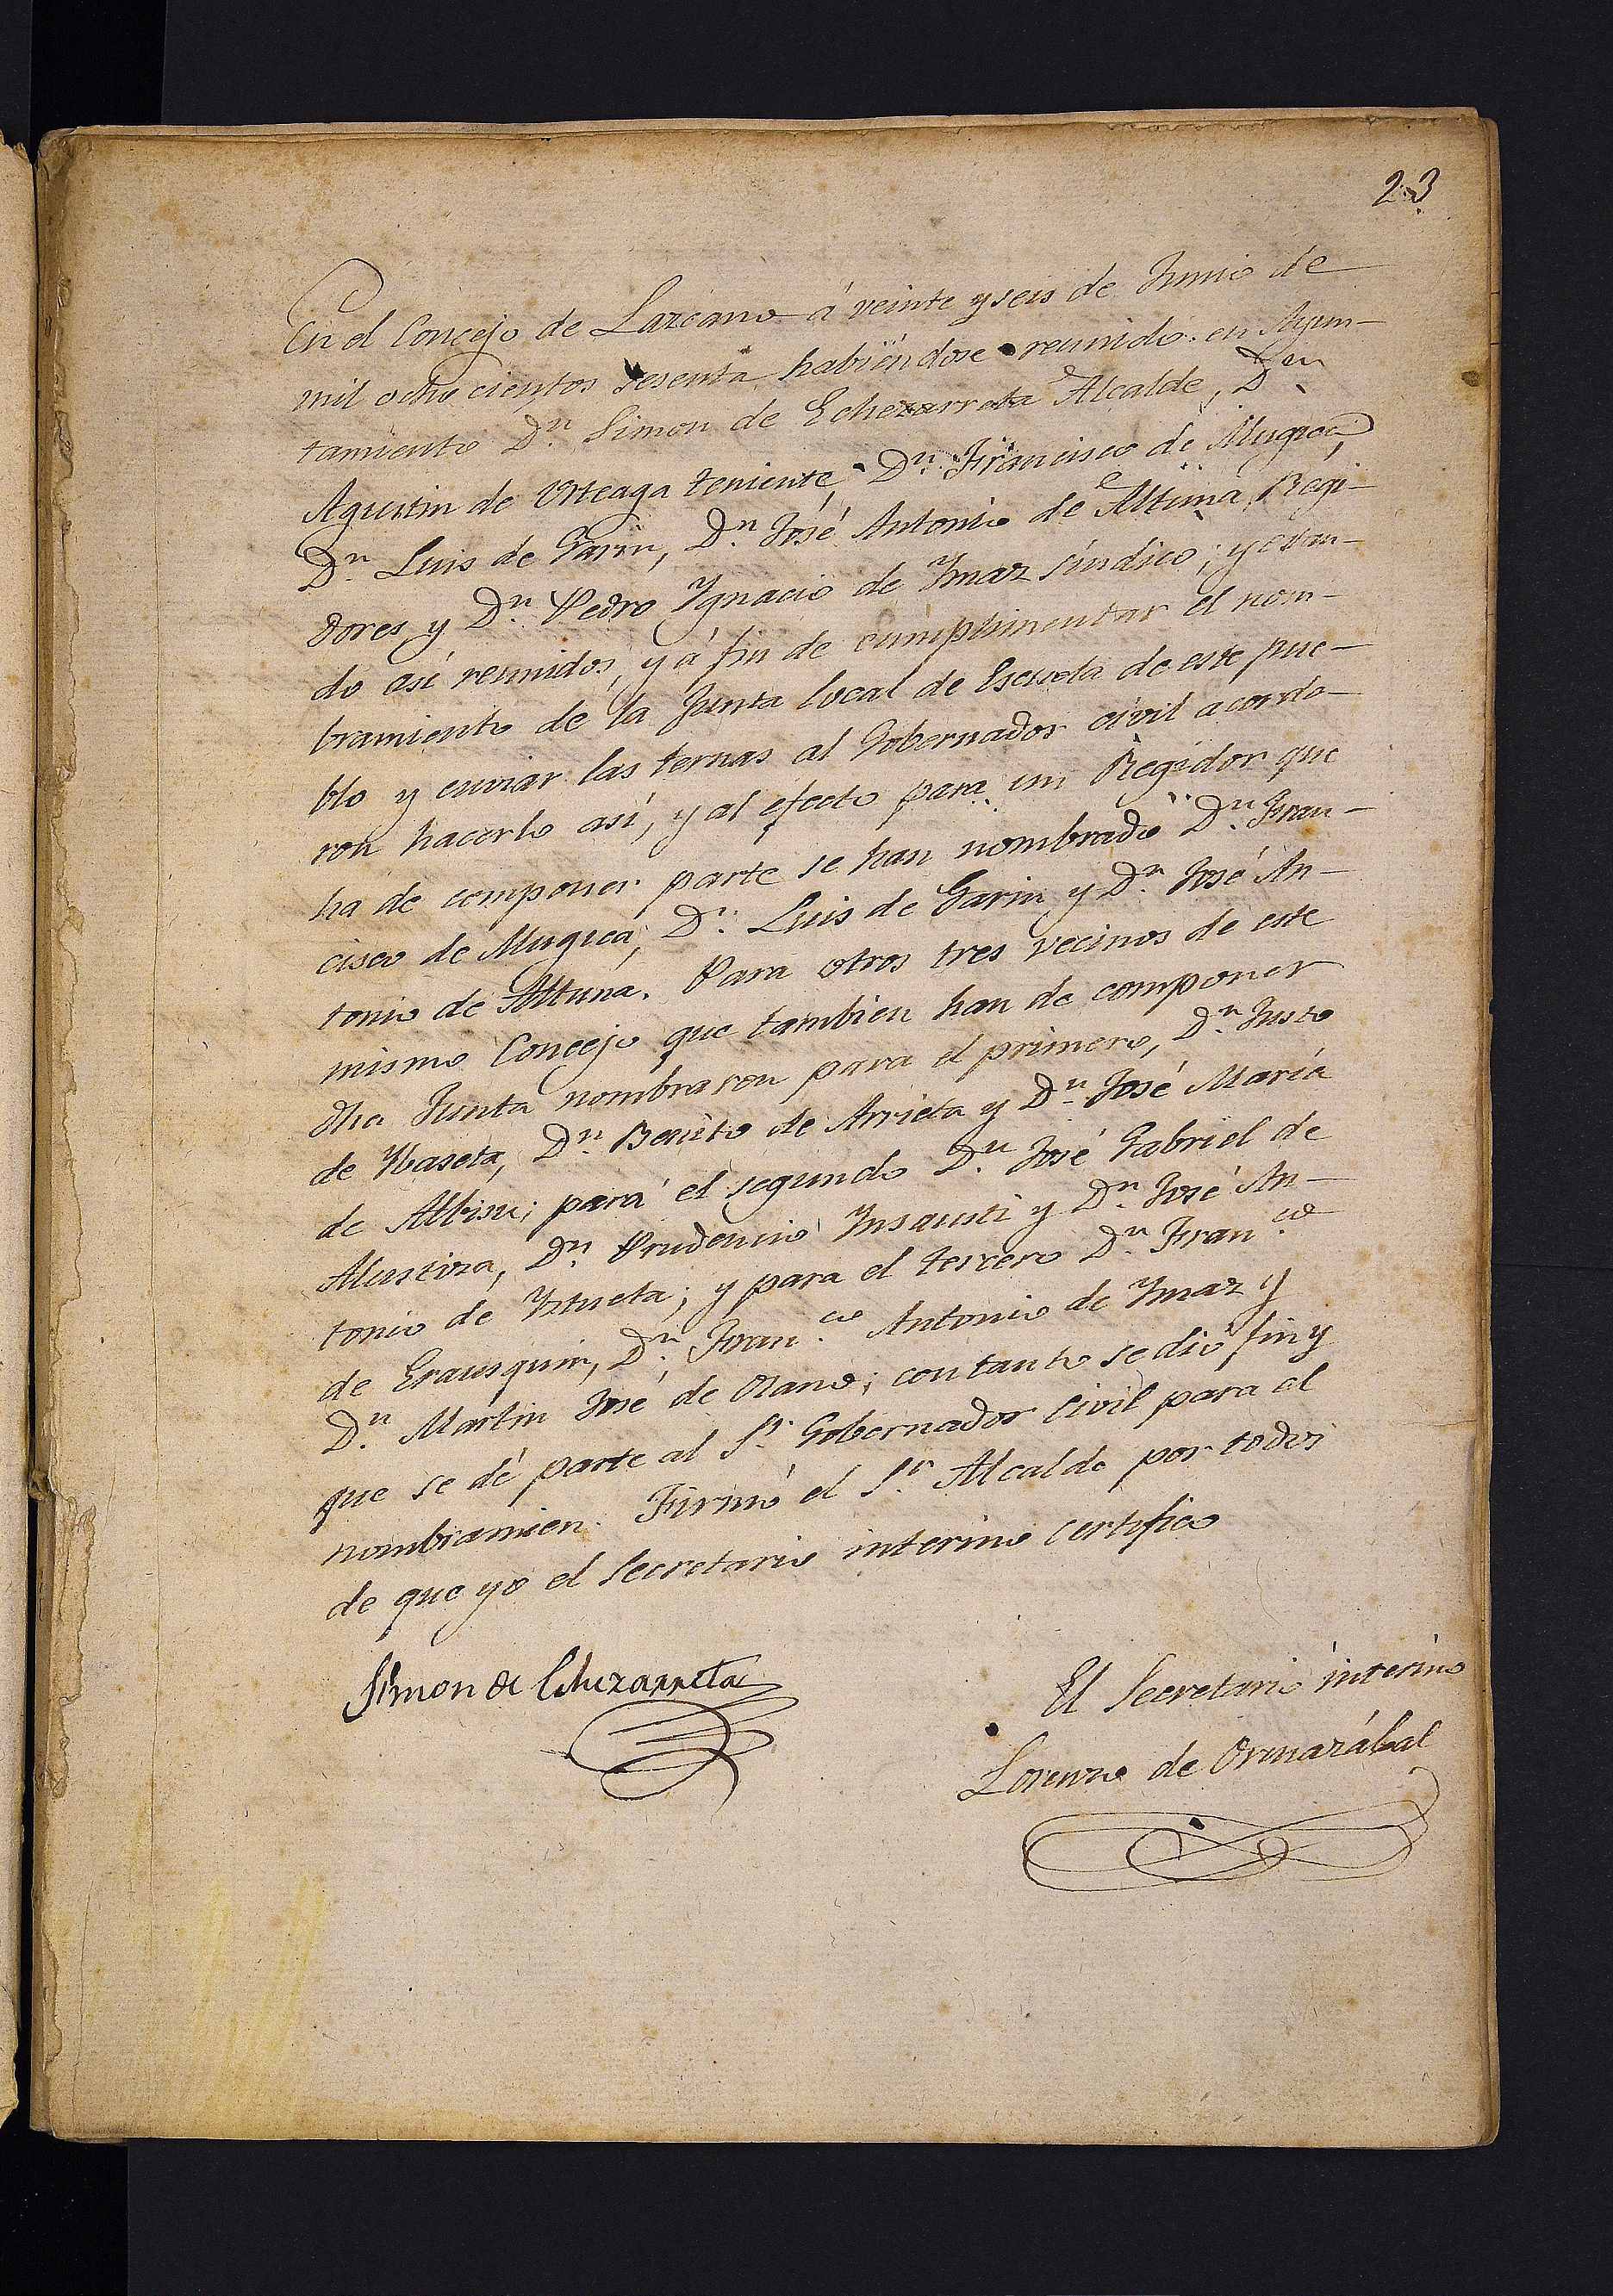 23
En el Concejo de Lazcano á veinte y seis de Junio de
mil ocho cientos sesenta habiendose reunido en Ayun-
tamiento Dn. Simon de Echezarreta Alcalde, Dn.
Agustin de Urteaga teniente Dn. Francisco de Mugica,
Dn. Luis de Garin, Dn. José Antonio de Altuna Regi-
dores, y Dn. Pedro Ygnacio de Ymaz síndico; y estan-
do así reunidos, y á fin de cumplimentar el nom-
bramiento de la Junta local de Escuela de este pue-
blo y enviar las ternas al Gobernador civil acorda-
ron hacerlo así, y al efecto para un Regidor que
ha de componer parte se han nombrado Dn. Fran-
cisco de Mugica, Dn. Luis de Garin y Dn. José An-
tonio de Altuna. Para otros tres vecinos de este
mismo Concejo que tambien han de componer
dha Junta nombraron para el primero, Dn. Justo
de Ybaseta, Dn. Benito de Arrieta y Dn. José María
de Albisu; para el segundo Dn. José Gabriel de
Alustiza, Dn. Prudencio Insausti y Dn. José An-
tonio de Yztueta; y para el tercero Dn. Fran.co
de Erausquin, Dn. Fran.co Antonio de Ymaz y
Dn. Martin José de Olano; con tanto se dió fin y
que se dé parte al Sr. Gobernador Civil para el
nombramien. Firmó el Sr. Alcalde por todos
de que yo el Secretario interino certifico
Simon de Echezarreta
El Secretario interino
Lorenzo de Ormazábal